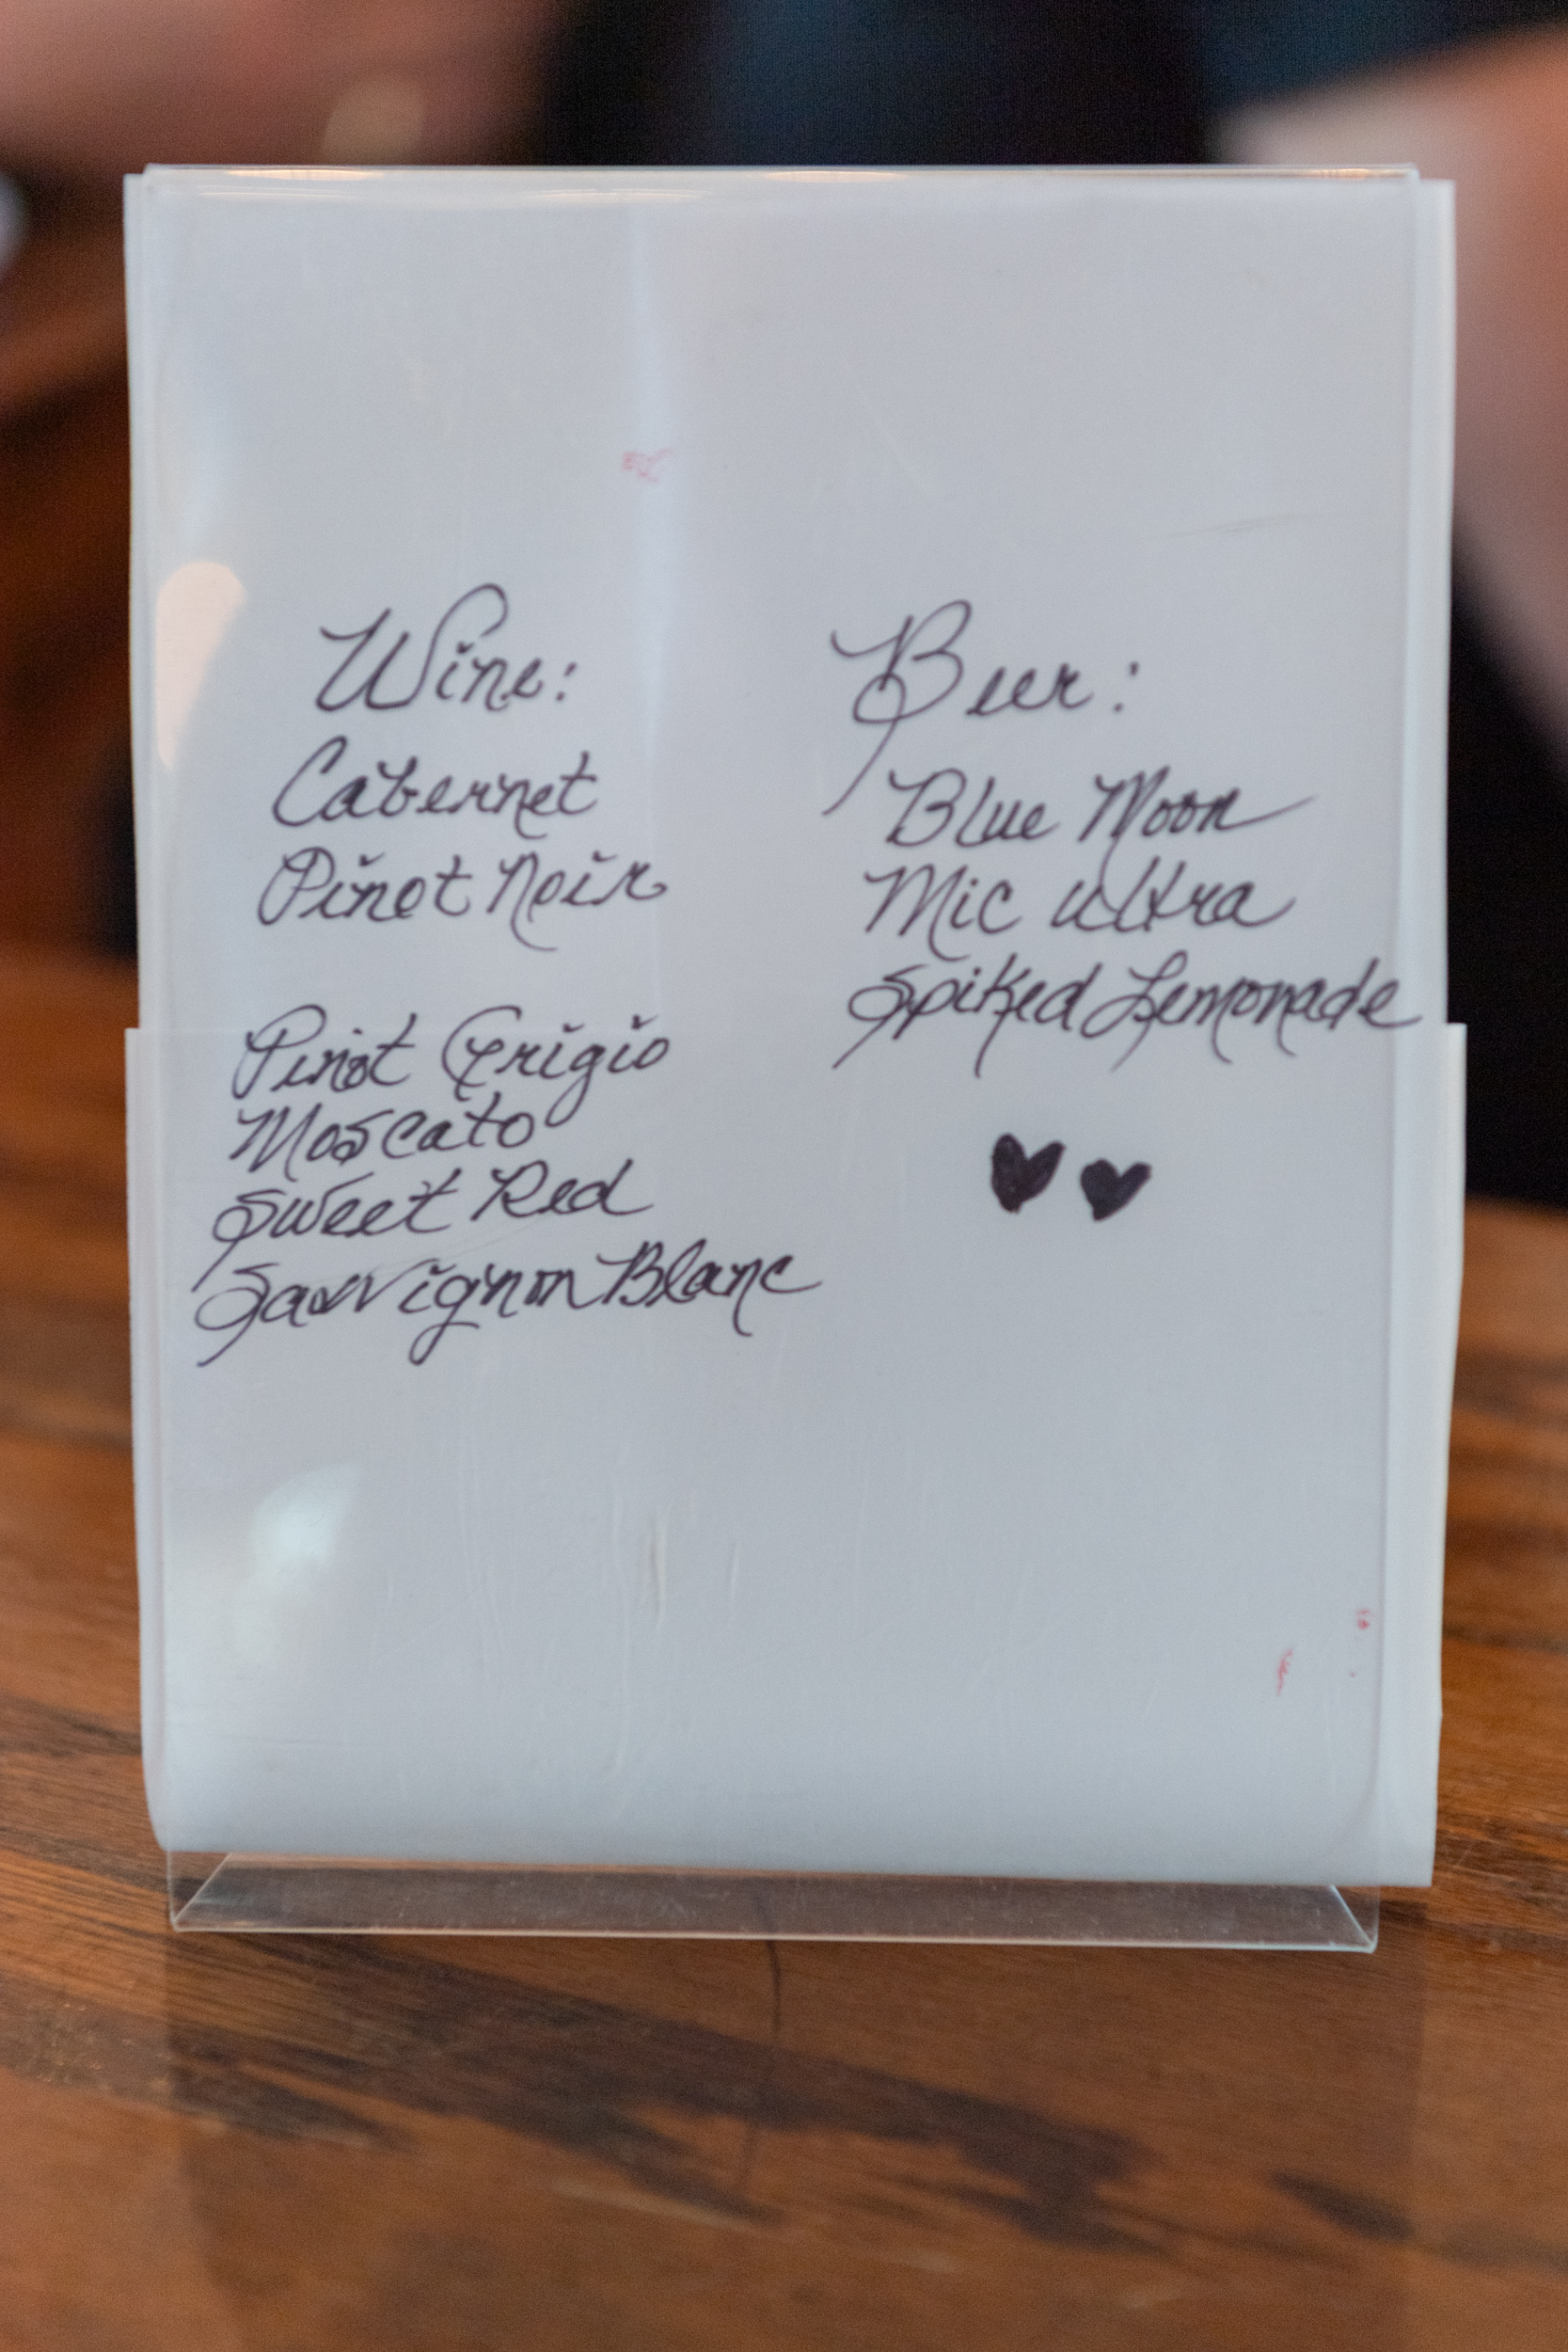 Wine:
Cabernet
Pinot Noir
Pinot Grigio
Moscato
Sweet Red
Sauvignon Blanc
Beer:
Blue Moon
Mic Ultra
Spiked Lemonade